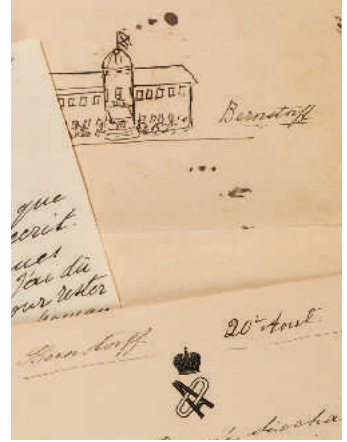 Bernstorff
que
écrit.
ques
J'ai dû
pour rester
Bernstorff
20 Août